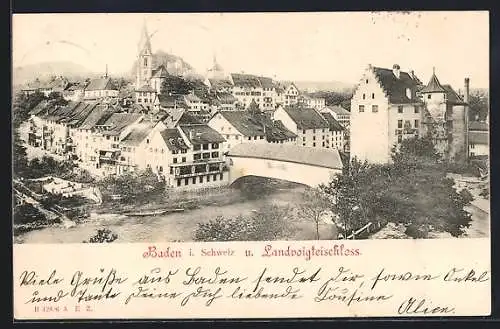 Baden i. Schweiz u. Landvoigteischloss.
Viele Grüße aus Baden sendet dir, sowie Onkel
und Tante deine dich liebende Cousine
Alice.
B 1286 A E. Z.